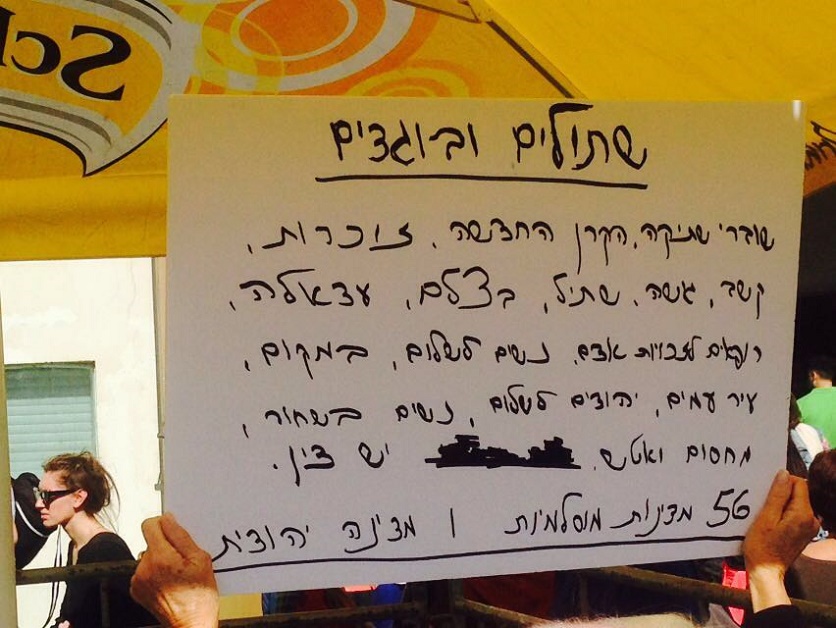 שתולים ובוגדים
שוברי שתיקה, הקרן החדשה, זוכרות,
קשב, גשה, שתיל, בצלם, עדאלה,
רופאים לזכויות אדם, נשים לשלום, במקום,
עיר עמים, יהודים לשלום, נשים בשחור,
מחסום ואטש, יש דין.
56 מדינות מוסלמיות 1 מדינה יהודית